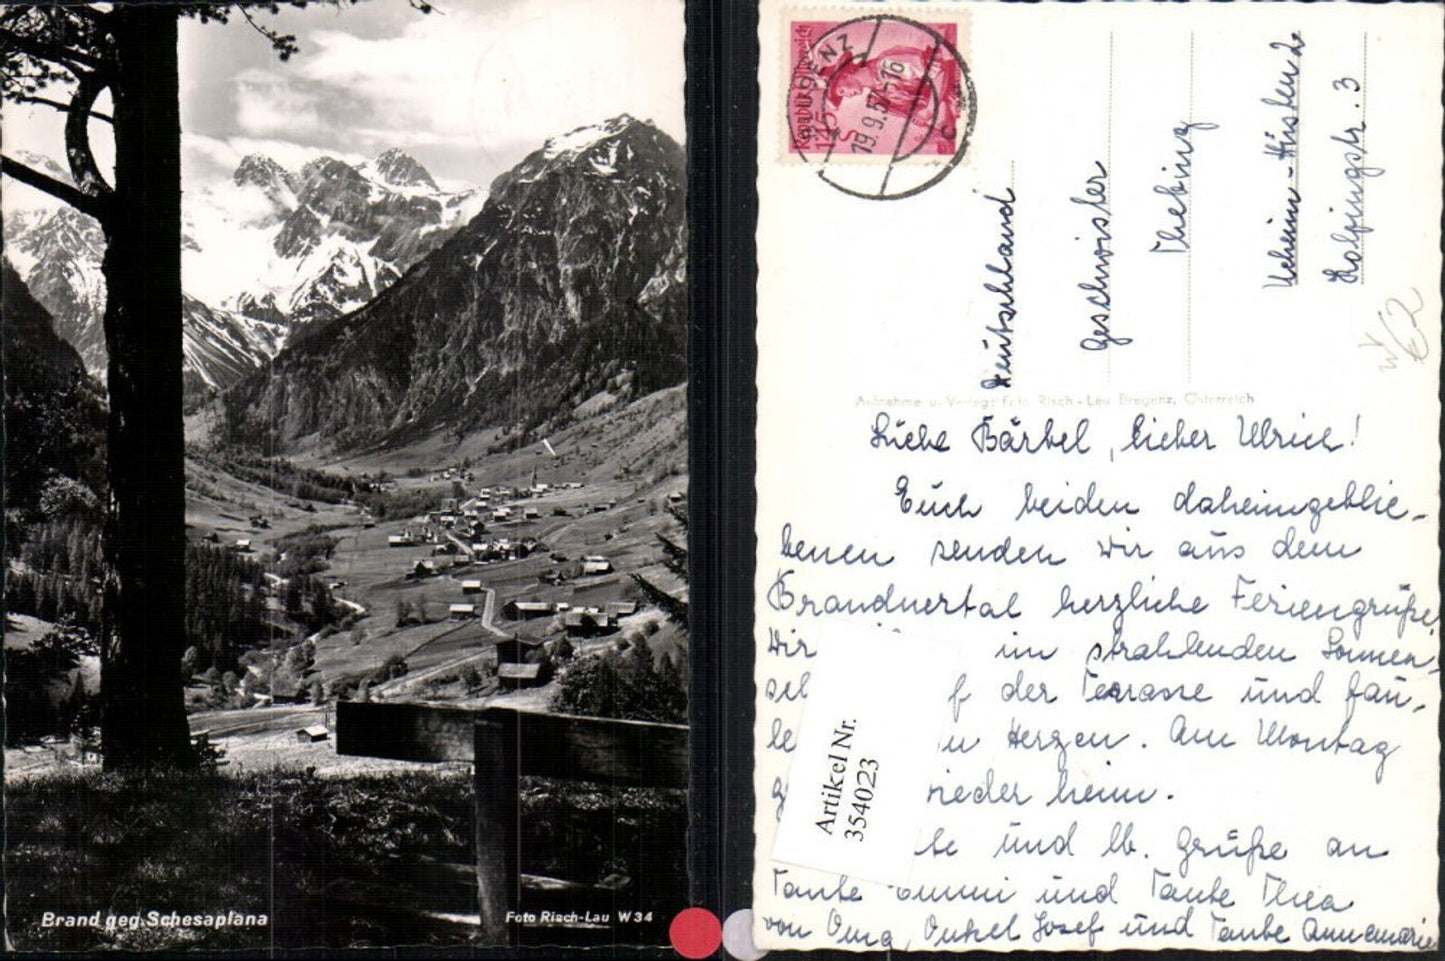 Brand geg. Schesaplana
Foto Risch-Lau W 34
Republik Österreich
1.45 S
19.9.57-16
Deutschland
Geschwister
Kolpingstr. 3
Aufnahme u. Verlag: Foto Risch-Lau, Bregenz, Österreich
Liebe Bärbel, lieber Ulrich!
Euch beiden daheimgeblie-
benen senden wir aus dem
Brandnertal herzliche Feriengrüße.
Wir
im strahlenden Sonnen-
der Terrasse und fau-
Herzen. Am Montag
wieder heim.
und lb. Grüße an
Tante
und Tante Thea
von Oma, Onkel Josef und Tante Annemarie
Artikel Nr.
354023